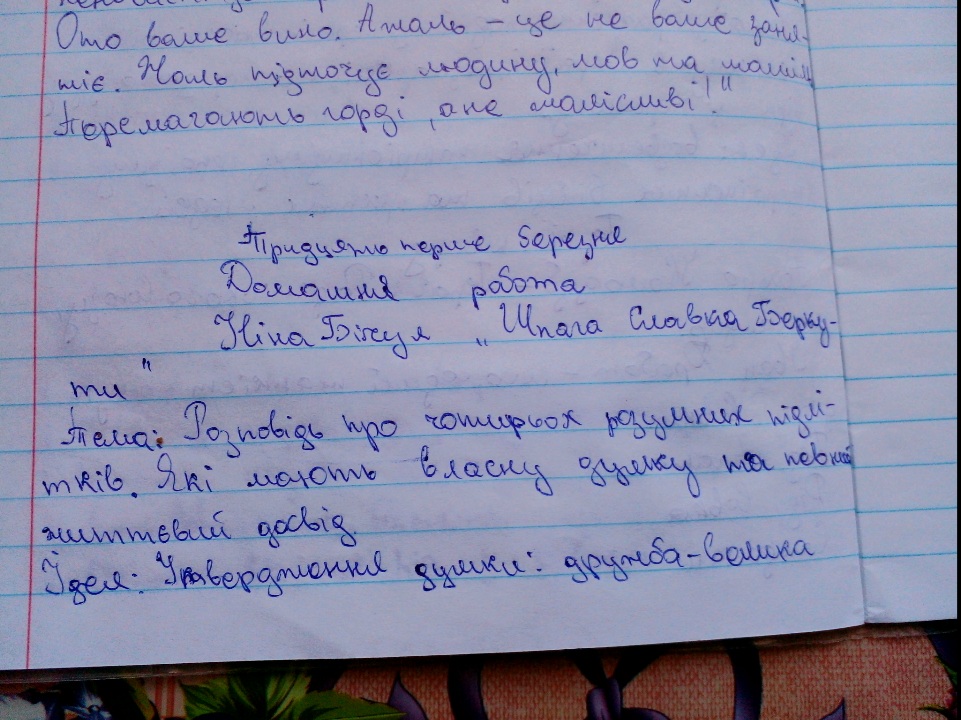 Ото ваше вино. А жаль – це не ваше заня-
тіє. Жаль підточує людину, мов та
Перемагають горді, а не жалісливі!"
Тридцять перше березня
Домашня робота
Ніна Бічуя „Шпага Славка Берку-
ти"
Тема: Розповідь про чотирьох розумних підлі-
тків. Які мають власну думку та певний
життєвий досвід
Ідея: Утвердження думки: дружба-велика